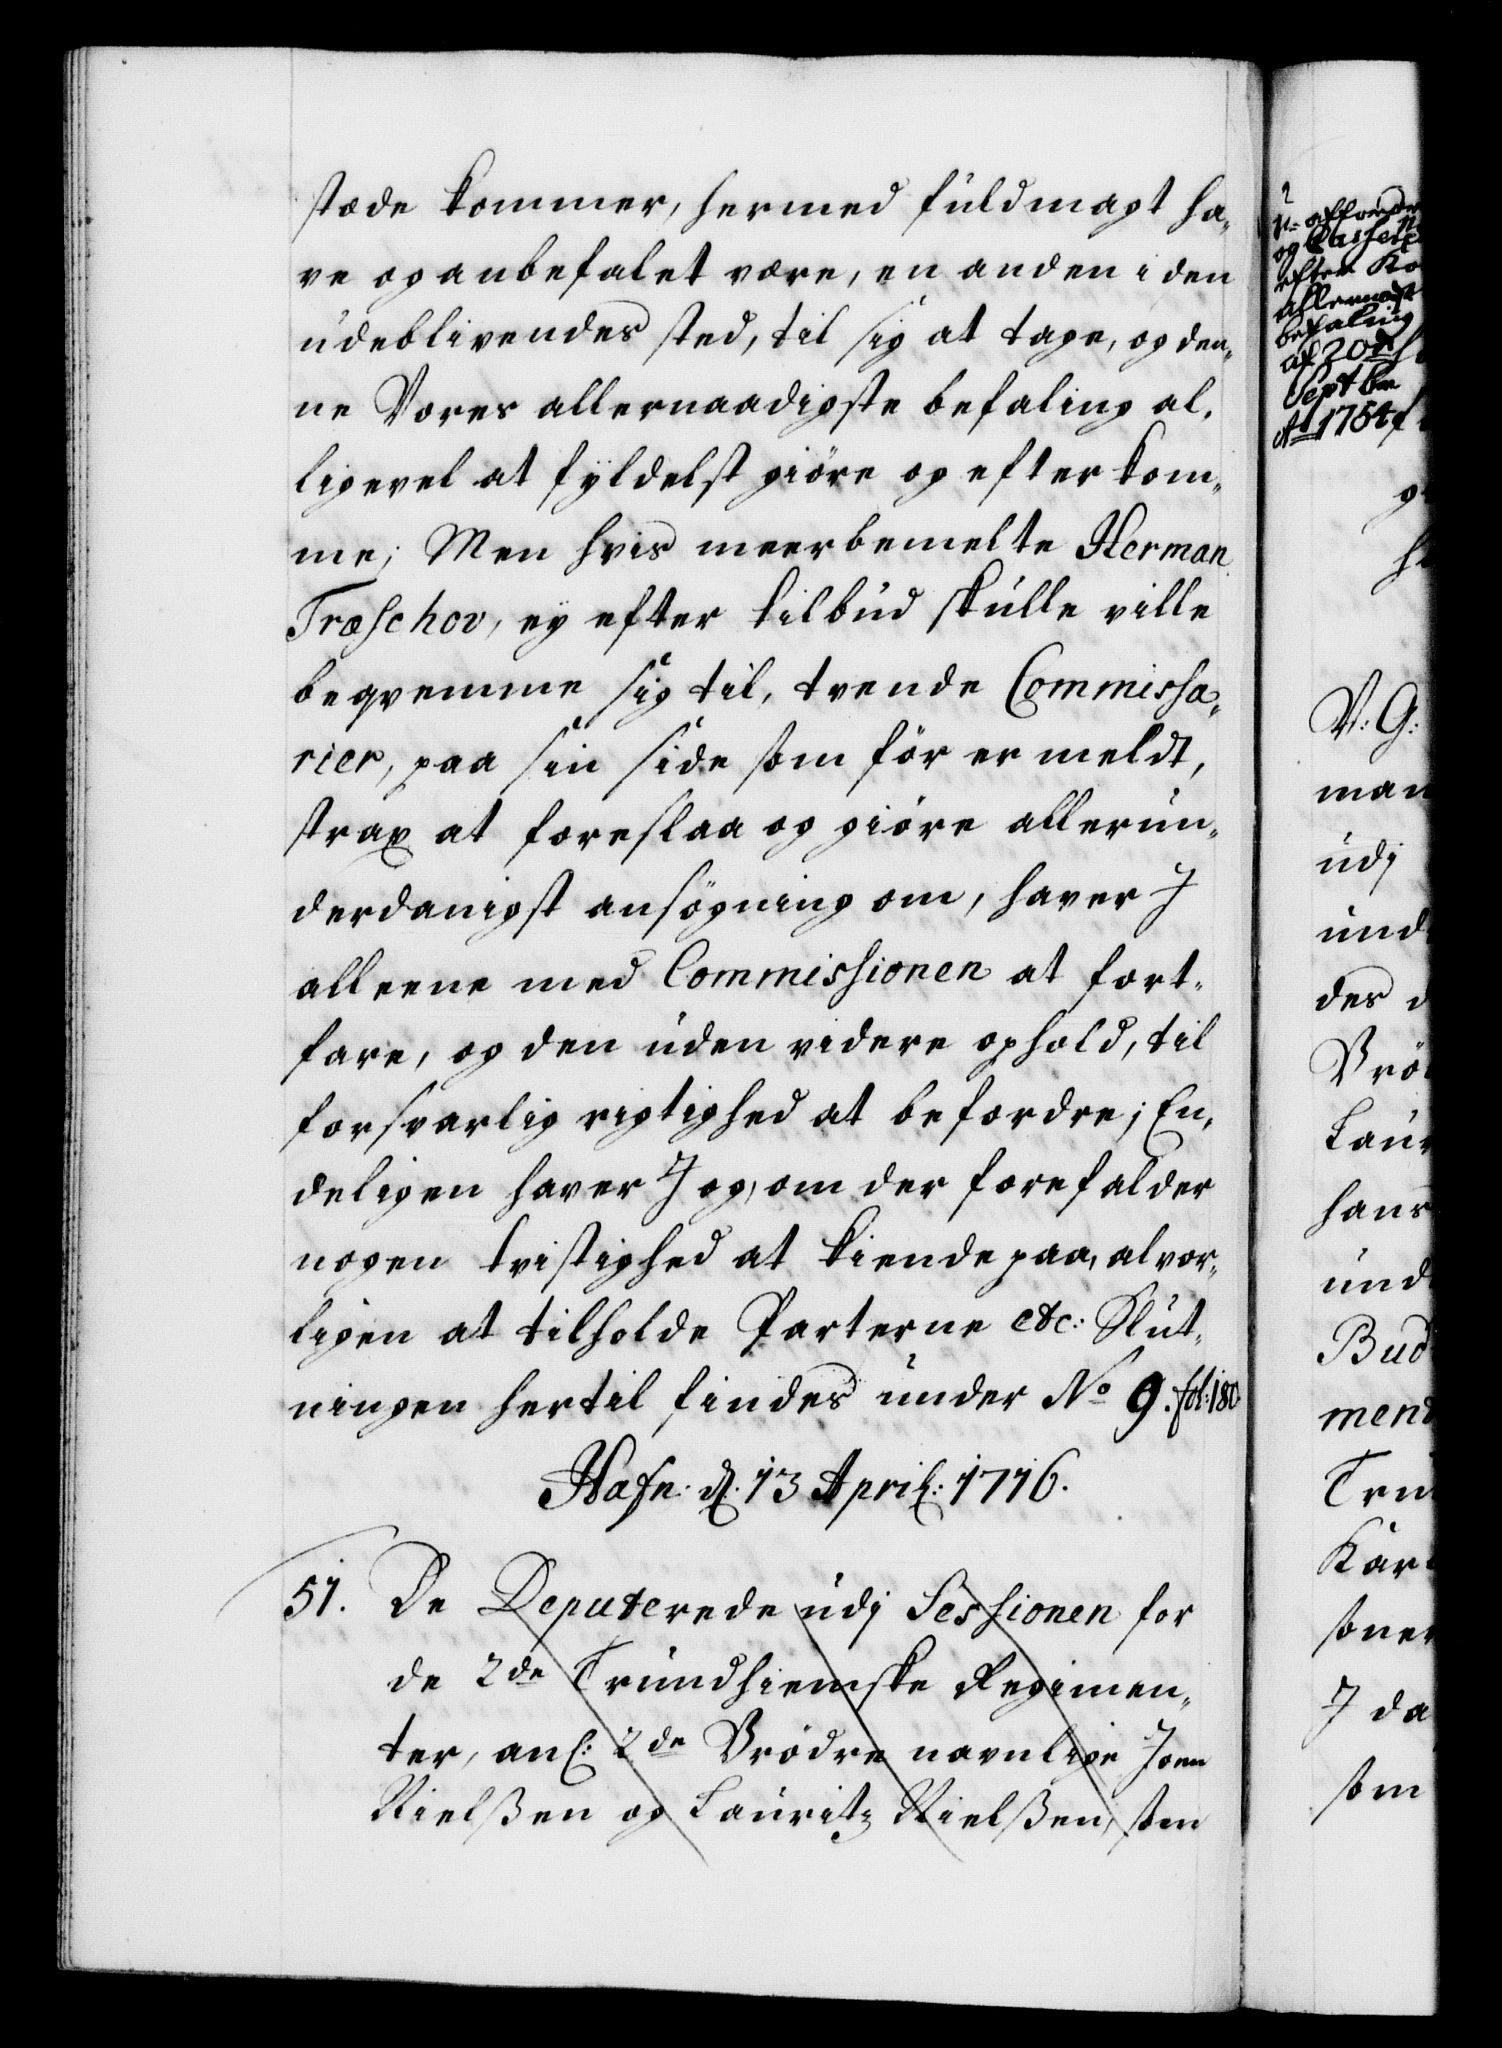 stæde kommer, hermed fuldmagt ha,
ve og anbefalet være, en anden i den
udeblivendes sted, til sig at tage, og den,
ne Vores allernaadigste befaling al,
ligevel at fyldelst giöre og efterkom,
me; Men hvis meerbemelte Herman
Træschov, ey efter tilbud skulle ville
beqvemme sig til, tvende Commissa,
rier, paa sin side som för er meldt,
strax at foreslaa og giöre allerun,
derdanigst ansögning om, haver J
alleene med Commissionen at fort,
fare, og den uden videre ophold, til
forsvarlig rigtighed at befordre; En,
deligen haver J og, om der forefalder
nogen tvistighed at kiende paa, alvor,
ligen at tilholde Parterne etc: Slut,
ningen hertil findes under No 9. fol: 180
Hafn: d. 13 April: 1716.
51. De Deputerede udj Sessionen for
de 2de Trundhiemske Regimen,
ter, anl: 2de Brödre navnlige Joen
Nielßen og Lauritz Nielßen, som
efter Ko
allernaadst
befaling
af 20de
Septbr
Ao 1754
V: G:
man
udj
und
des d
Brö
Laur
hans
und
Bud
mend
Tru
Kar
soner
J da
som